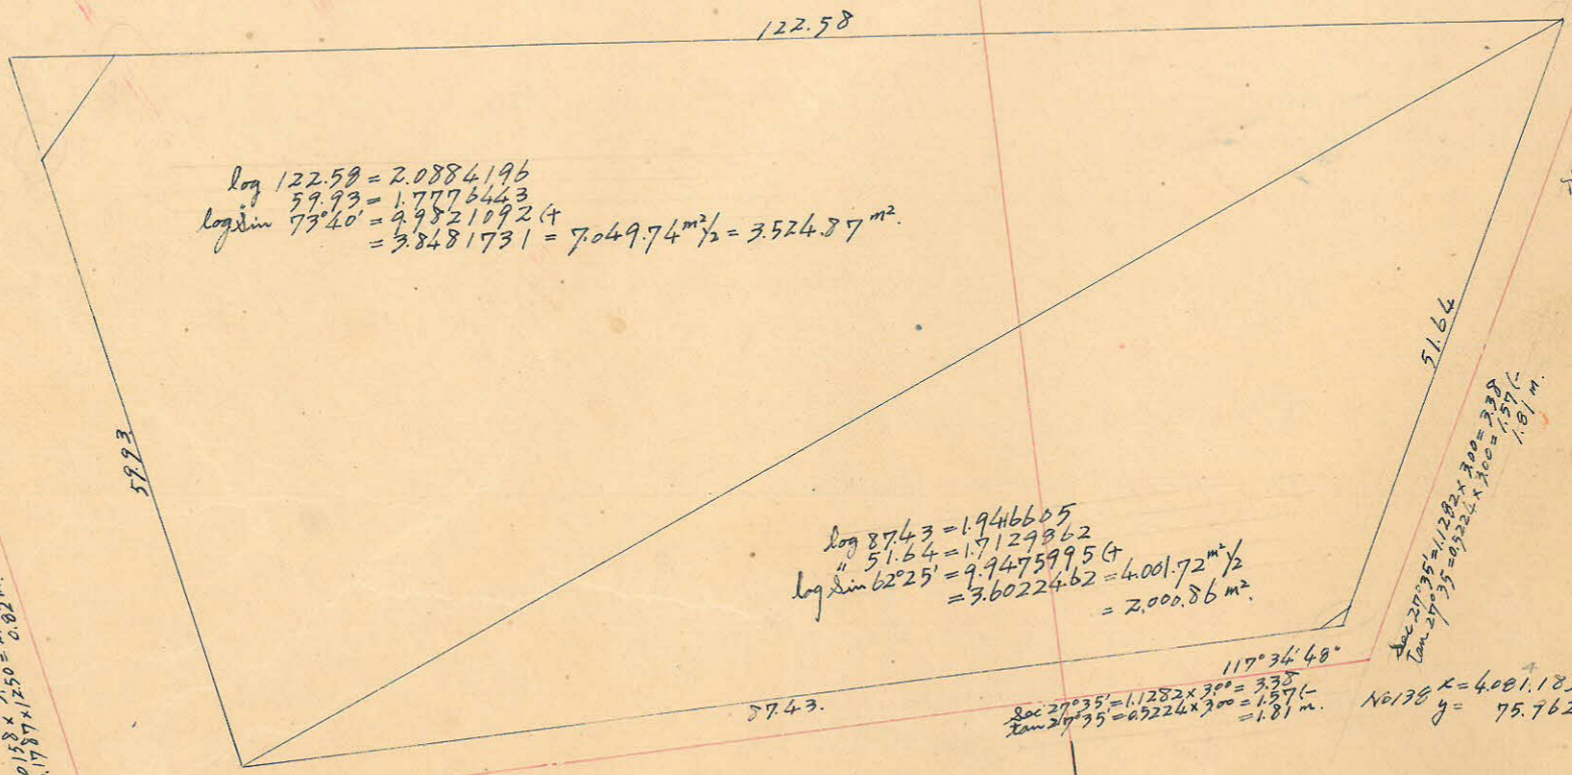 122.58
log 122.58 = 2.0884196
" 59.93 = 1.7776443
log sin 73°40' = 9.9821092 (+
= 3.8481731 = 7.049.74 m²/2 = 3.524.87 m².
59.93
51.64
log 87.43 = 1.9416605
" 51.64 = 1.7129862
log sin 62°25' = 9.9475995 (+
= 3.6022462 = 4.001.72 m²/2
= 2.000.86 m².
Sec 27°35' = 1.1282 × 3.00 = 3.38
tan 27°35 = 0.5224 × 3.00 = 1.57 (-
1.81 m.
117°34'48"
87.43.
Sec 27°35' = 1.1282 × 3.00 = 3.38
tan 27°35' = 0.5224 × 3.00 = 1.57 (-
= 1.81 m.
No 138 x = 4.081.18
y = 75.962
0.82 m.